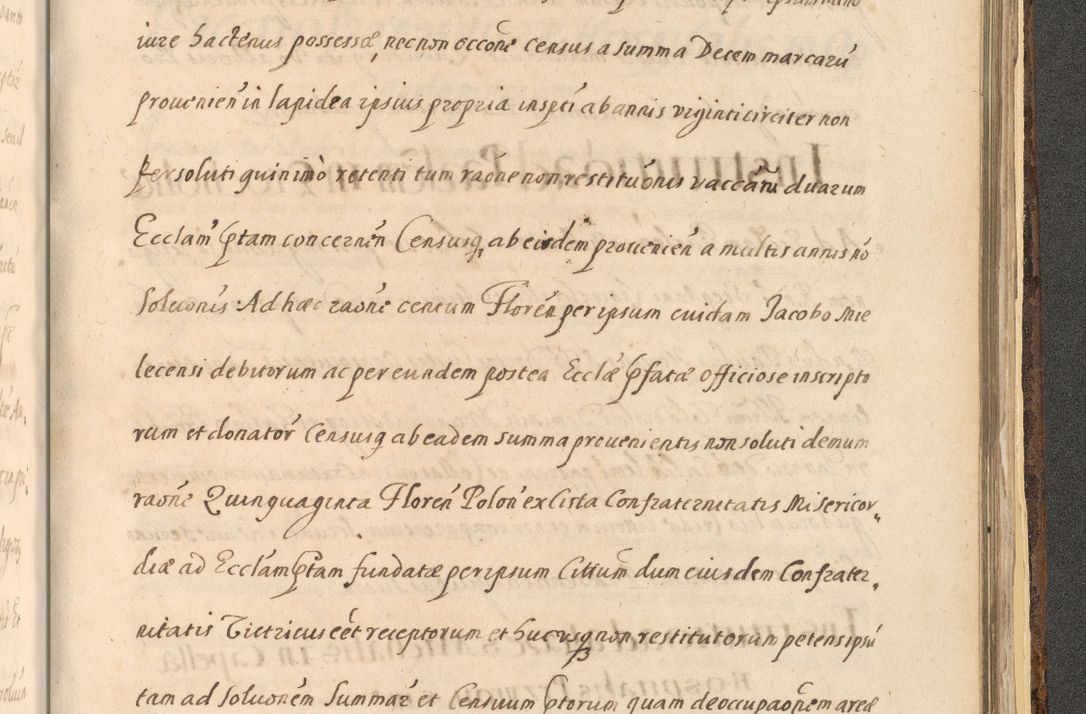 iure hactenus possessæ, necnon occoñe census a summa Decem marcarũ
prouenieñ in lapidea ipsius propria inspti ab annis viginti circiter non
persoluti quinimò retenti tum raõne non restituõnis vaccarũ duarum
Ecclam̃ ptam concerneñ Censusq ab eisdem prouenieñ a multis annis nõ
Soluõnis Ad hæc raõne centum Floreñ per ipsum cuidam Jacobo Mie
lecensi debitorum ac per eundem postea Ecclæ pfatæ officiose inscripto
rum et donator̃ Censusq ab eadem summa prouenientis non soluti demum
raõne Quinquaginta Floreñ Poloñ ex Cista Confraternitatis Misericor„
diæ ad Ecclam ptam fundatæ per ipsum Citum̃ dum eiusdem Confrater„
nitatis esset receptorum et hucusq non restitutorum petens ipsũ
tam ad Soluoñem Summar̃ et Censuum ptorum quam de occupaoñem areæ